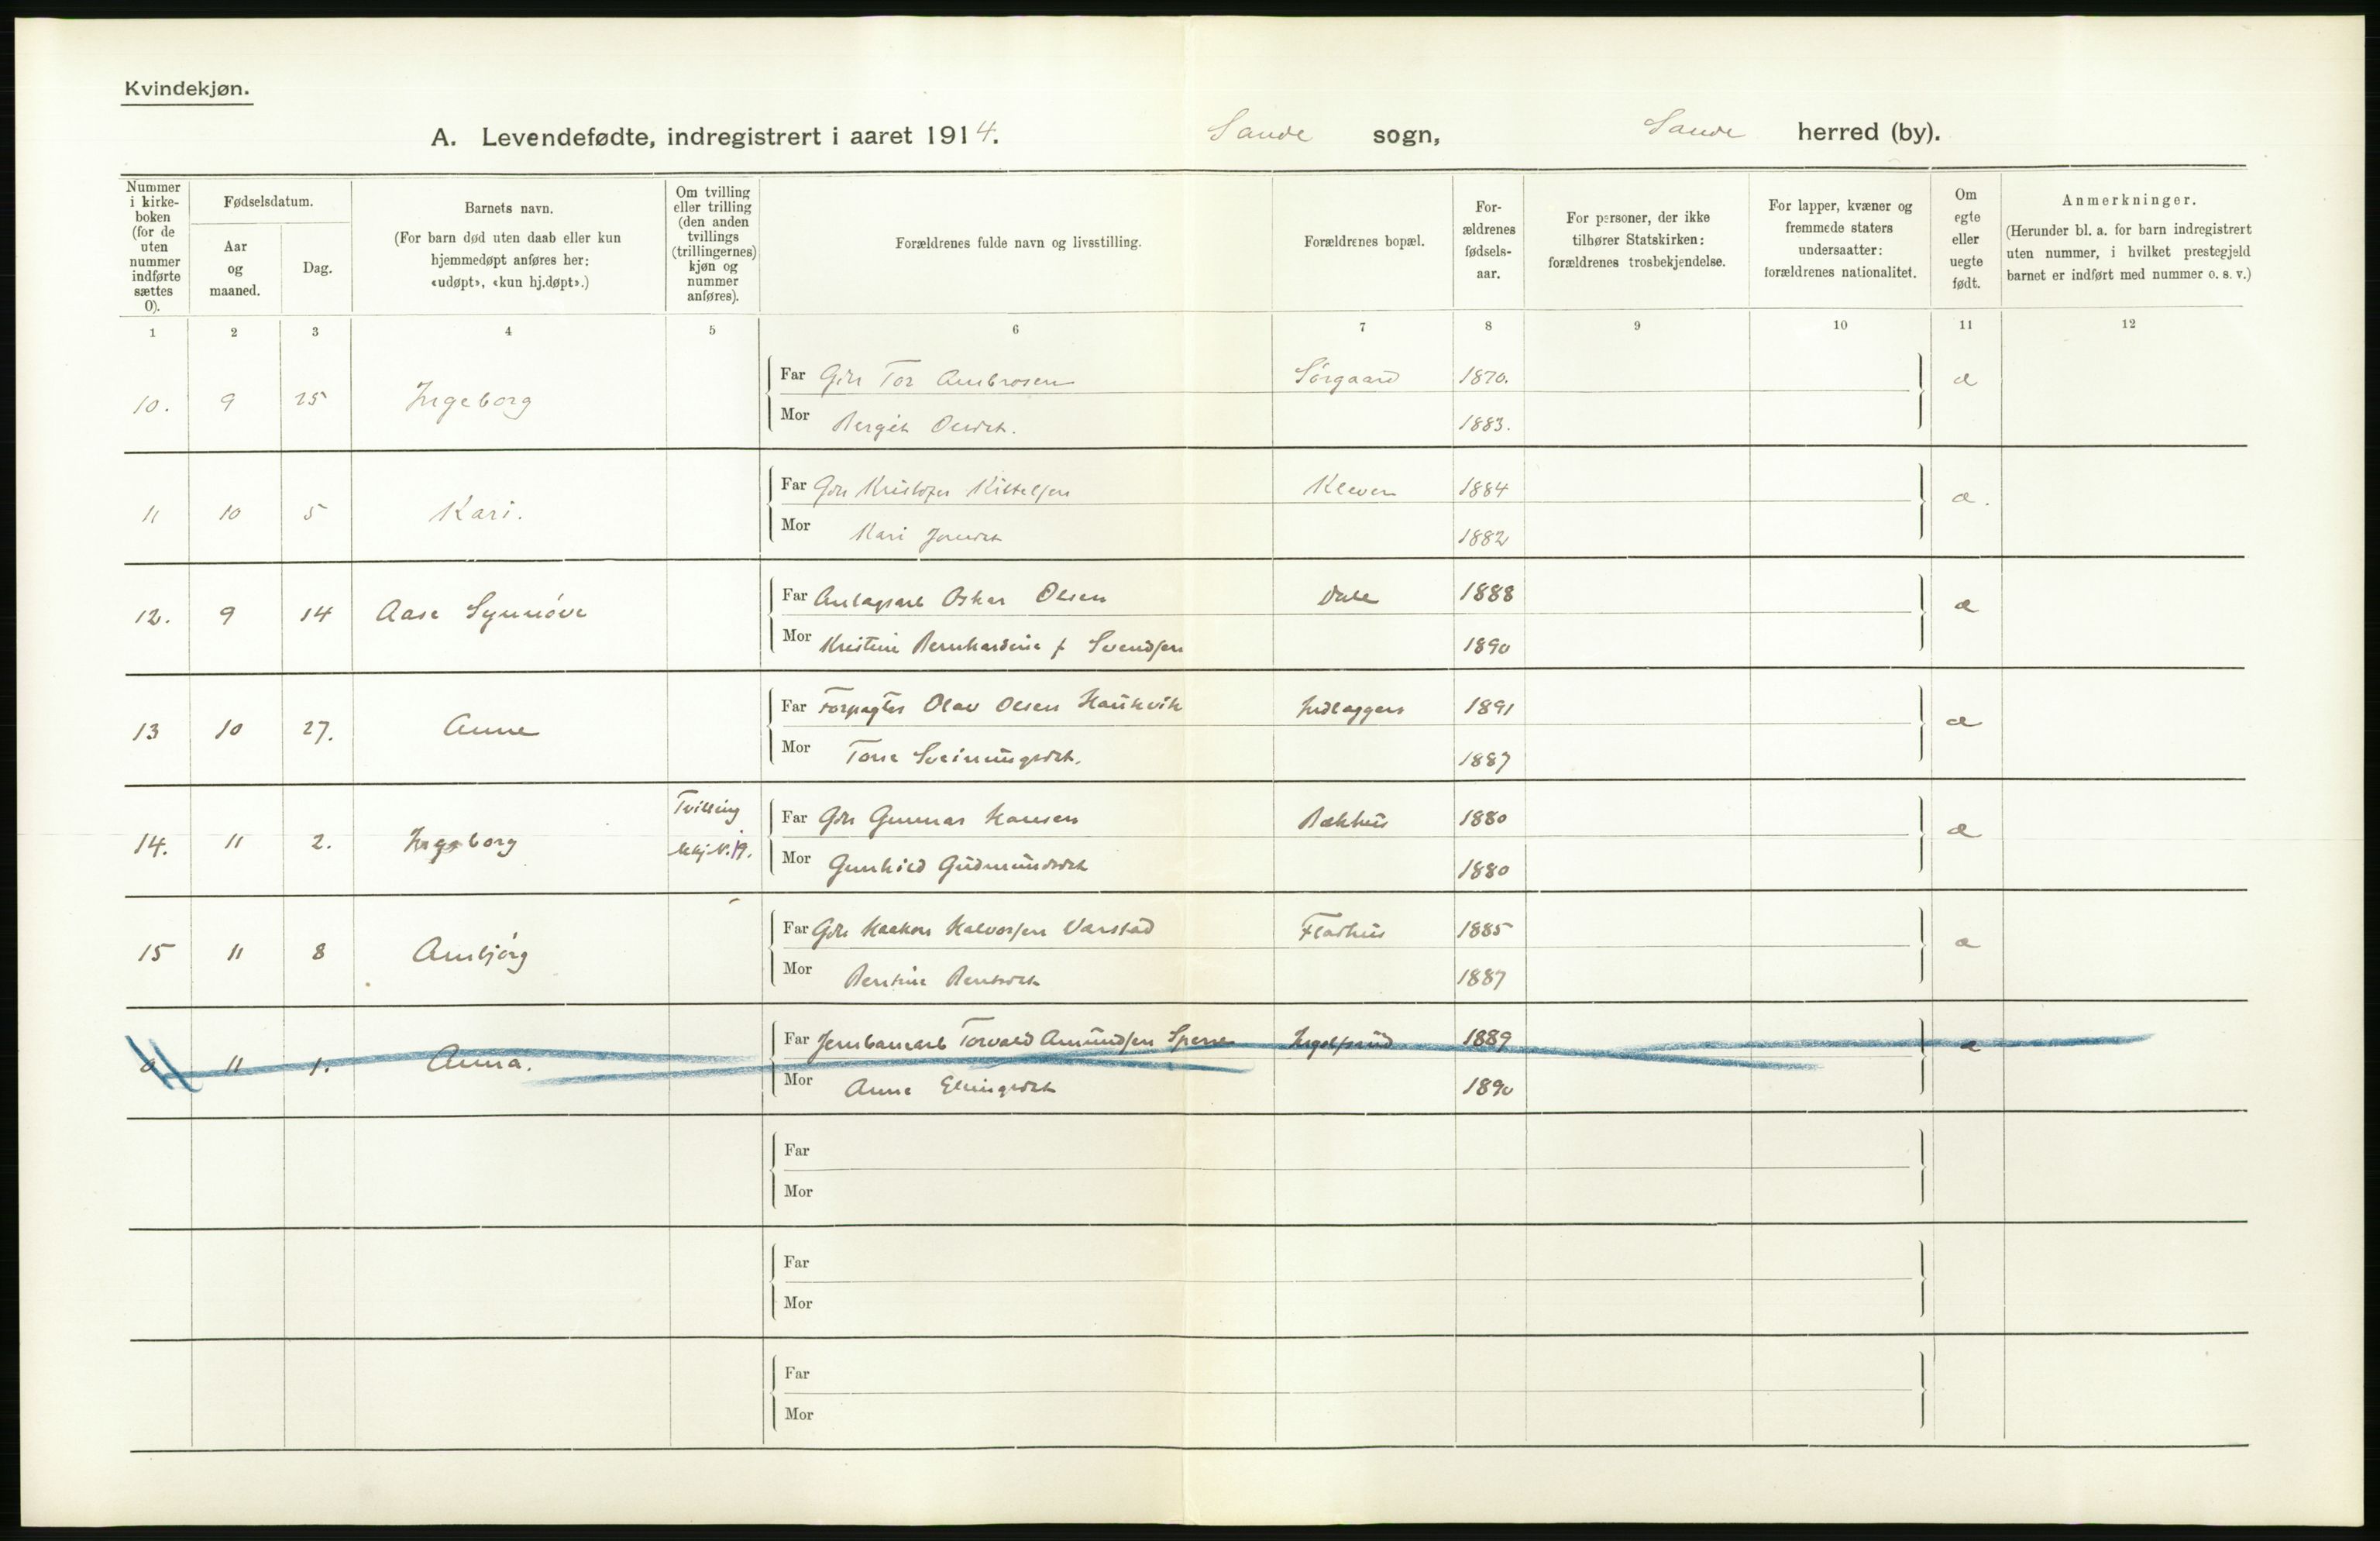 Kvindekjøn.
A. Levendefødte, indregistrert i aaret 1914. Sande sogn, Sande herred (by).
Nummer i kirke-boken (for de uten nummer indførte sættes 0).
Fødselsdatum.
Aar og maaned.
Dag.
Barnets navn.
(For barn død uten daab eller kun hjemmedøpt anføres her: «udøpt», «kun hj.døpt».)
Om tvilling eller trilling (den anden tvillings (trillingernes) kjøn og nummer anføres).
Forældrenes fulde navn og livsstilling.
Forældrenes bopæl.
For-ældrenes fødsels-aar.
For personer, der ikke tilhører Statskirken: forældrenes trosbekjendelse.
For lapper, kvæner og fremmede staters undersaatter: forældrenes nationalitet.
Om egte eller uegte født.
Anmerkninger.
(Herunder bl. a. for barn indregistrert uten nummer, i hvilket prestegjeld barnet er indført med nummer o. s. v.)
1 2 3 4 5 6 7 8 9 10 11 12
Far Gdr Tor Ambrosen Sørgaard 1870.
10. 9 25 Ingeborg
Mor Bergit 1883.
Far Gdr Kristofer Kittelsen Kleven 1884
11 10 5 Kari.
Mor Kari 1882
Far Anlagsarb Oskar Olsen Dale 1888
12. 9 14 Aase Synnöve
Mor Kristine Bernhardine f Svendsen 1890
Far Forpagter Olav Olsen Haukvik 1891
13 10 27. Anne
Mor Tone Sveinungsdtr. 1887
Tvilling
Far Gdr Gunnar Hansen Bækhus 1880
14. 11 2. Ingeborg
Mor Gunhild Gudmundsdtr 1880
Far Gdr Haakon Halvorsen Varstad Flathus 1885
15 11 8 Ambjörg
Mor Bentine Bentsdtr 1887
Far Jernbanearb Torvald Amundsen Sperre 1889
0 11 1. Anna.
Mor Anne Ellingsdtr 1890
Far
Mor
Far
Mor
Far
Mor